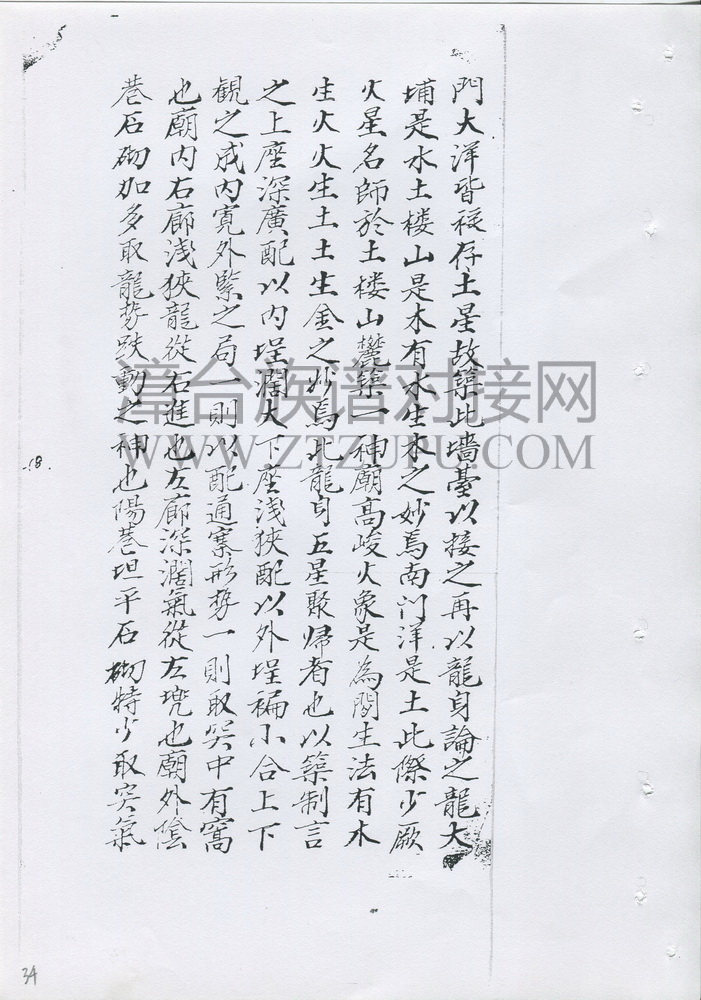 門大洋皆祿存土星故築此墻臺以接之再以龍身論之龍大
埔是水土楼山是木有水生木之妙焉南门洋是土此際少厥
火星名師於土楼山麓築一神廟高峻火象是為間生法有木
生火火生土土生金之妙焉此龍身五星聚帰者也以築制言
之上座深廣配以内埕濶大下座浅狹配以外埕褊小合上下
観之成内寬外緊之局一則以配通寨形势一則取突中有窩
也廟内右廊浅狹龍從右進也左廊深濶氣從左兜也廟外陰
巷石砌加多取龍势跌動之神也陽巷坦平石砌特少取突氣
漳台族谱对接网
WWW.ZTZUPU.COM
18.
34